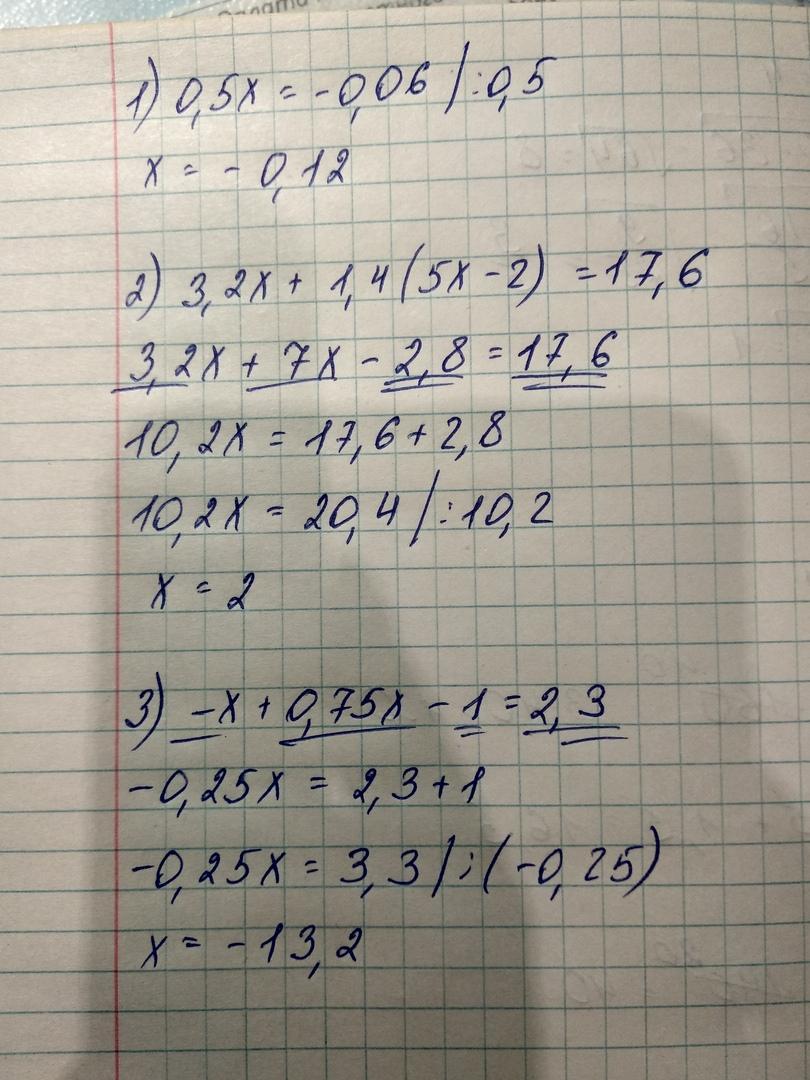 1) 0,5x = -0,06 / :0,5
x = - 0,12
2) 3,2x + 1,4(5x - 2) = 17,6
3,2x + 7x - 2,8 = 17,6
10,2x = 17,6 + 2,8
10,2x = 20,4 / :10,2
x = 2
3) -x + 0,75x - 1 = 2,3
-0,25x = 2,3 + 1
-0,25x = 3,3 / :(-0,25)
x = -13,2